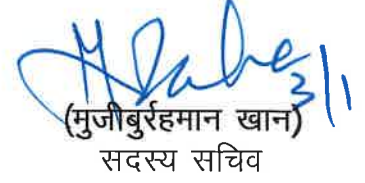 3/1
(मुजीबुर्रहमान खान)
सदस्य सचिव